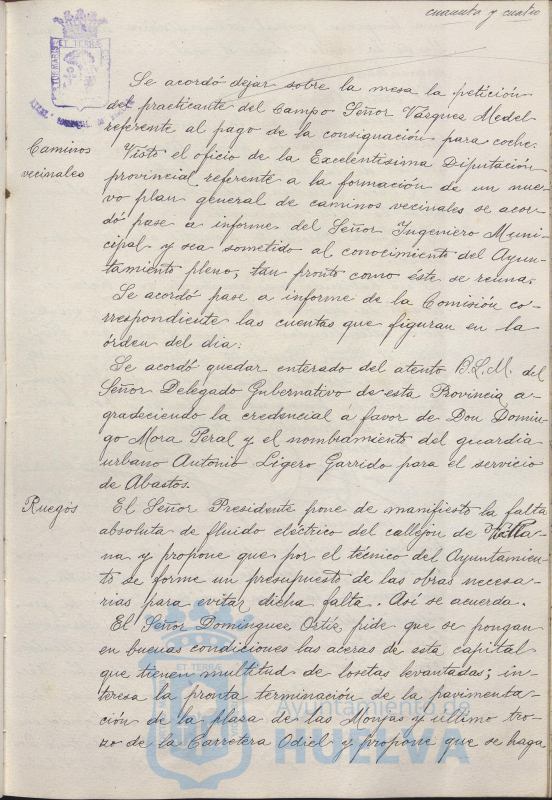 cuarenta y cuatro
Se acordó dejar sobre la mesa la petición
del practicante del Campo Señor Vázquez Medel
referente al pago de la consignación para coche.
Caminos vecinales
Visto el oficio de la Excelentísima Diputación
provincial referente a la formación de un nue-
vo plan general de caminos vecinales se acor-
dó pase a informe del Señor Ingeniero Muni-
cipal y sea sometido al conocimiento del Ayun-
tamiento pleno, tan pronto como éste se reuna.
Se acordó pase a informe de la Comisión co-
rrespondiente las cuentas que figuran en la
órden del dia.
Se acordó quedar enterado del atento B.L.M. del
Señor Delegado Gubernativo de esta Provincia a-
gradeciendo la credencial a favor de Don Domin-
go Mora Peral y el nombramiento del guardia
urbano Antonio Ligero Garrido para el servicio
de Abastos.
Ruegos
El Señor Presidente pone de manifiesto la falta
absoluta de fluido eléctrico del callejon de
na y propone que por el técnico del Ayuntamien-
to se forme un presupuesto de las obras necesa-
rias para evitar dicha falta. Asi se acuerda.
El Señor Domínguez Ortiz pide que se pongan
en buenas condiciones las aceras de esta capital
que tienen multitud de losetas levantadas; in-
teresa la pronta terminación de la pavimenta-
ción de la plaza de las Monjas y último tro-
zo de la Carretera Odiel y propone que se haga
ET TERRÆ
Ayuntamiento de
HUELVA